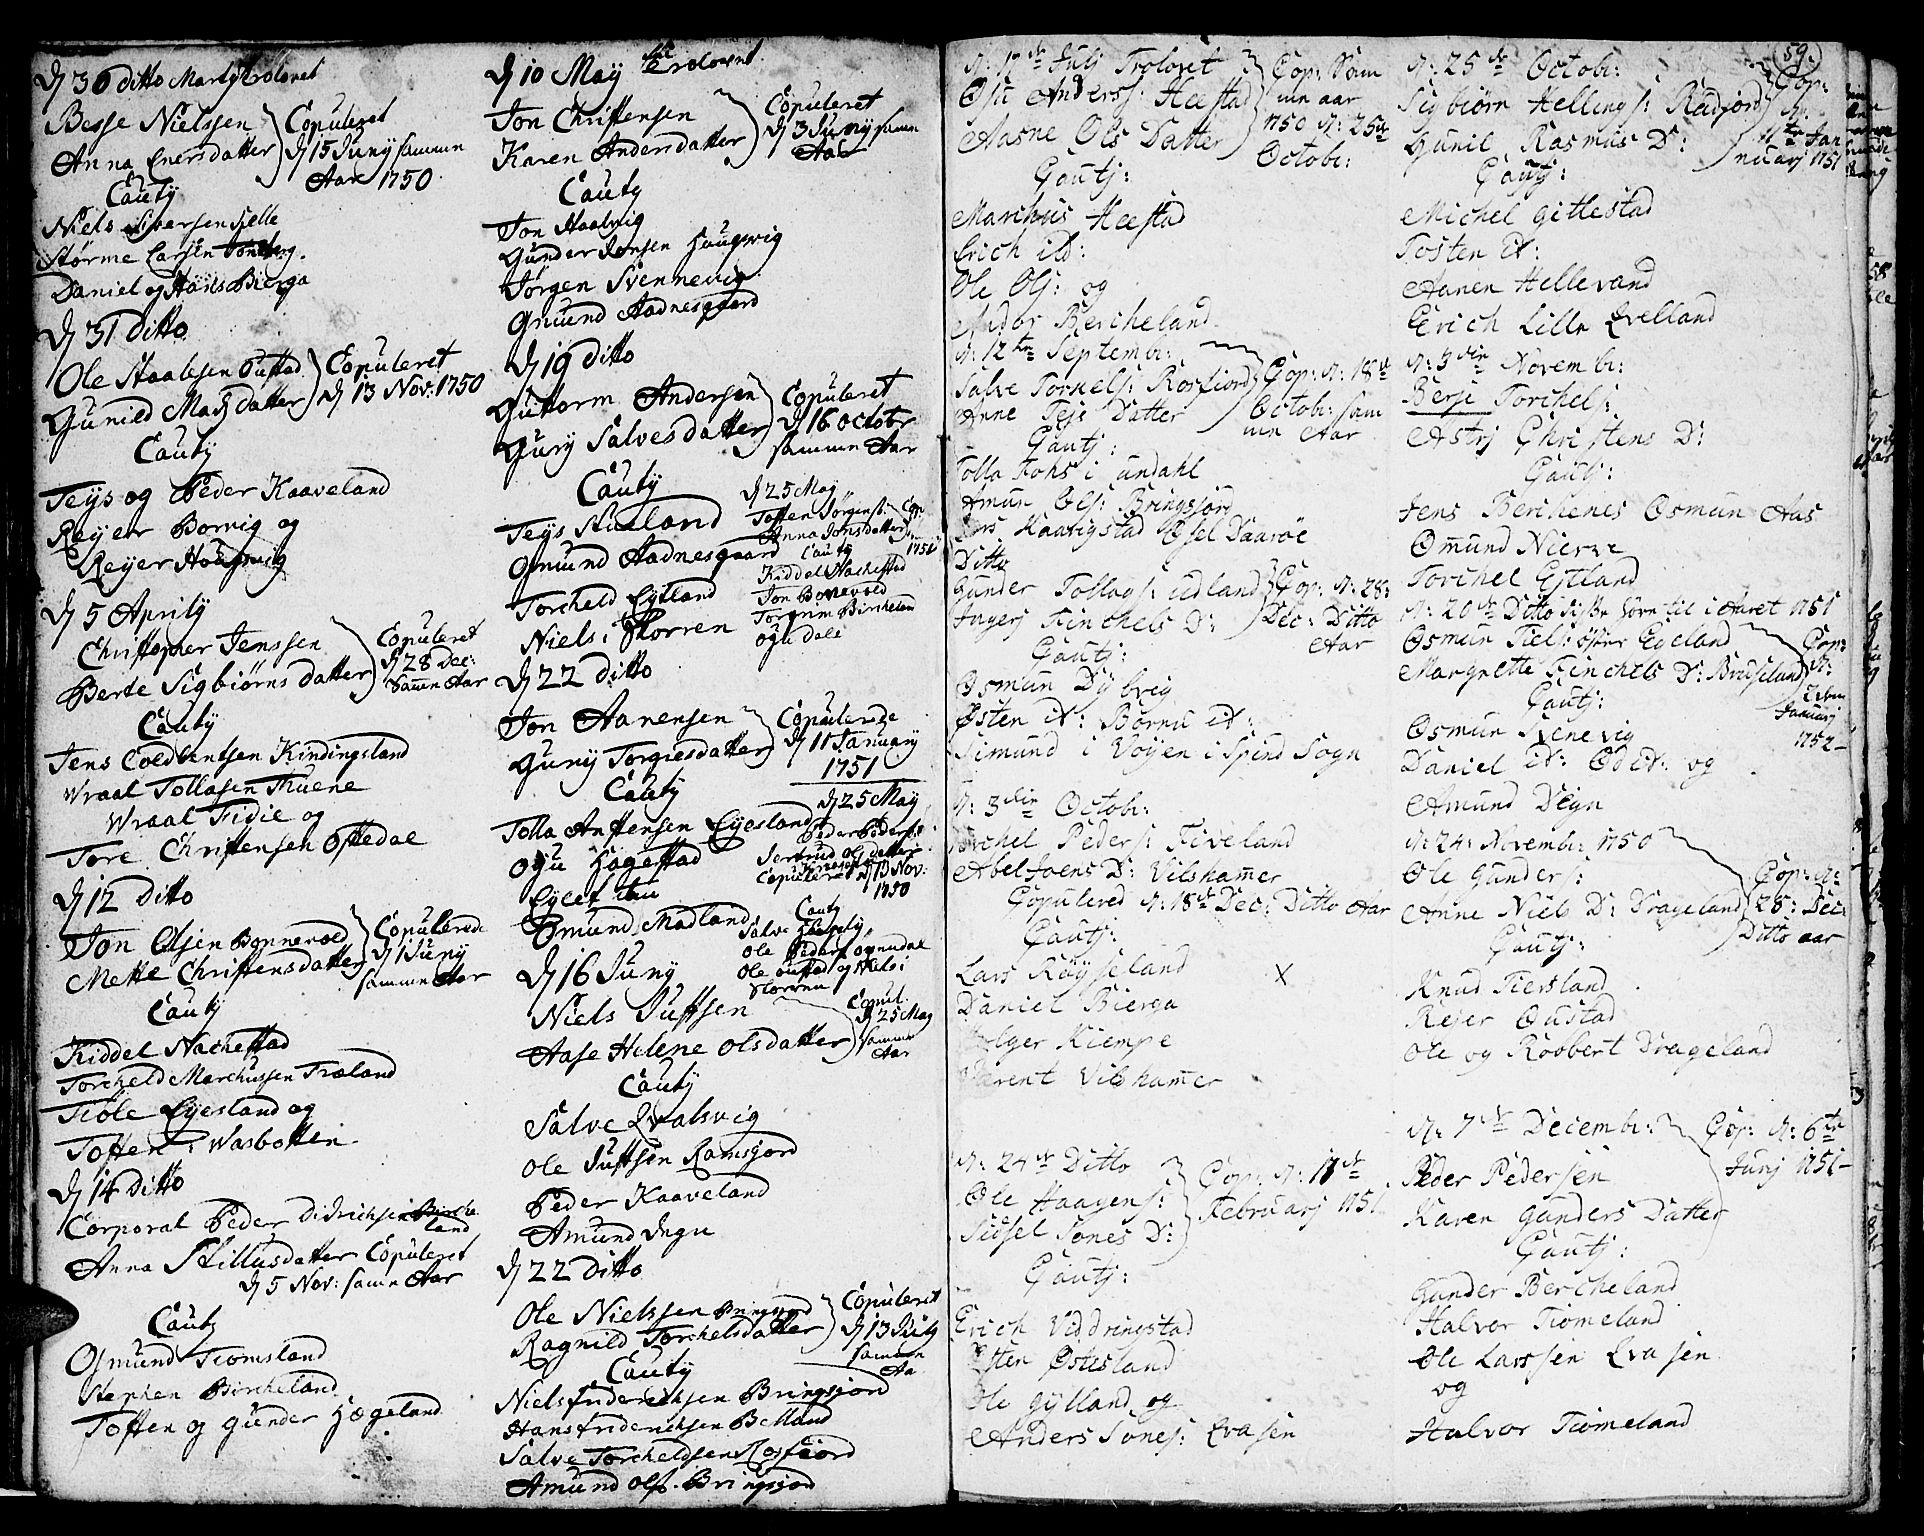 D 30 ditto Martÿ trolovet
Besse Nielssen
Anna Enersdatter
Copuleret
D 15 Junÿ samme
Aar 1750
Cautÿ
Niels Siversen Sælle
Størme Larsen
Daniel og Hans Bierga
D 31 Ditto
Ole Staalesen Oustad
Gunild Madsdatter
Copuleret
D 13 Nov: 1750
Cautÿ
Teÿs og Peder Kaaveland
Reÿer Bornig og
Reÿer
D 5 Aprilÿ
Christopher Jenssen
Berte Sigbiørns datter
Copuleret
D 28 Dec:
Samme Aar
Cautÿ
Jens Coedventsen Kindingsland
Wraal Tollasen Thuene
Wraal Fidie og
Tore Christensen Oftedal
D 12 Ditto
Jon Olsen Bonnevold
Mette Christensdatter
Copulerede
D 1 Junÿ
samme Aar
Cautÿ
Kiddel Nachestad
Torcheld Marchussen Træland
Tiøle Eÿesland og
Tosten i Wasbotten
D 14 Ditto
Corporal Peder Didrichsen Birche
land
Anna Stillusdatter Copuleret
D 5 Nov: samme Aar
Cautÿ
Osmund Tiomsland
Stephen Bircheland
Tosten og Gunder Hægeland
D 10 Maÿ Trolovet
Jon Christensen
Karen Andersdatter
Copuleret
D 3 Junÿ samme
Aar
Cautÿ
Jon Haalvig
Gunder Jensen Haugsvig
Jørgen Svennevig
Gmund Aadnesgaard
D 19 ditto
Guttorm Andersen
Gurÿ Salvesdatter
Copuleret
D 16 octobr
samme Aar
Cautÿ
Teÿs Nueland
Gmund Aadnesgaard
Torcheld Eÿtland
Niels i Skorren
D 25 Maj
Tosten Jørgens:
Anna Jonsdatter
Cop:
1751
Cautÿ
Kiddel Nachestad
Jon Bonevold
Torgrim Bircheland
Ogu dale
D 22 ditto
Jon Aanensen
Gunÿ Torgiesdatter
Copulerede
D 11 January
1751
Cautÿ
Tolla Anstensen Eÿesland
Ogu Hægestad
Eÿelf
Omund Madland
D 25 Maÿ
Peder Peders:
Jertrud Ols datter
Copuleret D 13 Nov:
1750
Cautÿ
Salve
Ole Peders opnudal
Ole oustad og Niels i
Skorren
D 16 Junÿ
Niels Justsen
Aase Helene olsdatter
Copul.
D 25 Maÿ
samme
Aar
Cautÿ
Salve Qvalsvig
Ole Justsen Ramsjord
Peder Kaaveland
Amund
D 22 ditto
Ole Nielssen Bringsjord
Ragnild Torchelsdatter
Copuleret
D 13 Julÿ
samme
Aa
Cautÿ
Niels friderichsen Bringsjord
Hans friderichsen Belland
Salve Torcheldsen Rosfiord
Amund olss. Bringsjord
59.
d: 17de Julj Troloret
Osu Anderss: Heestad
Aasne Ols Datter
Cop: Sam
me aar
1750 d: 25de
Octobr:
Cautj:
Marchus Heestad
Erich itd:
Ole Olss: og
Andor Bercheland
d: 12te Septembr:
Salve Torkels: Rosfiord
Anne Teje Datter
Cop: d: 18de
Octobr: sam
me Aar
Cautj:
Tolla Fohs i undahl
Amun Ols: Bringsjord
Lars Kaavigstad Assel Daarøe
Ditto
Gunder Tollags: udland
Ingerj Tinchels D:
Cop: d: 28:
Dec: Ditto
Aar
Cautj:
Osmun Dÿbvig
Østen it: it:
Simund i Vøyen i Spind Sogn
d: 3die Octobr:
Torchel Peders: Fiveland
Abel Joens D: Vilshamer
Copulered d: 18de Dec: Ditto Aar
Cautj:
Lars Røÿseland
Daniel Bierga
Holger Kiempe
Bærent Vilshamer
d: 24de Ditto
Ole Haagens:
Sissel Tones D:
Cop: d: 17de
Februarj 1751
Cautj:
Erich Viddringstad
Østen Østesland
Ole Gÿlland og
Anders Tones: Evasen
d: 25de Octobr:
Sigbiørn Hellings: Rødfiord
Gunil Rasmus D:
Cop:
d:
11te Jan
nuarj 1751
Cautj:
Michel Gitlestad
Tosten it:
Aanen Hellevand
Erich Lille Qvelland
d: 3die Novembr:
Berje Torchels:
Astrj Christens D:
Cautj:
Jens Berchenes Osmun Aas
Omund Nierve
Torchel Eitland
d: 20de Ditto disse hører til i Aaret 1751
Osmun Tiels: øfver Egeland
Margrette Tinchels D: Bredseland
Cop:
d:
Januarj
1752
Cautj:
Osmun Kenevig
Daniel it: Od it: og
Amund Degn
d: 24: Novembr: 1750
Ole Gunders:
Anne Niels D: Drageland
Cop: d:
28: Dec:
Ditto aar
Cautj:
Knud Tiersland
Rejer Oustad
Ole og Roobert Drageland
d: 7de Decembr:
Peder Pedersen
Karen Gunders Datter
Cop: d: 6te
Junj 1751
Cautj:
Gunder Bercheland
Halvor Tiomeland
Ole Larssen Evasen
og
Halvor Tiomeland